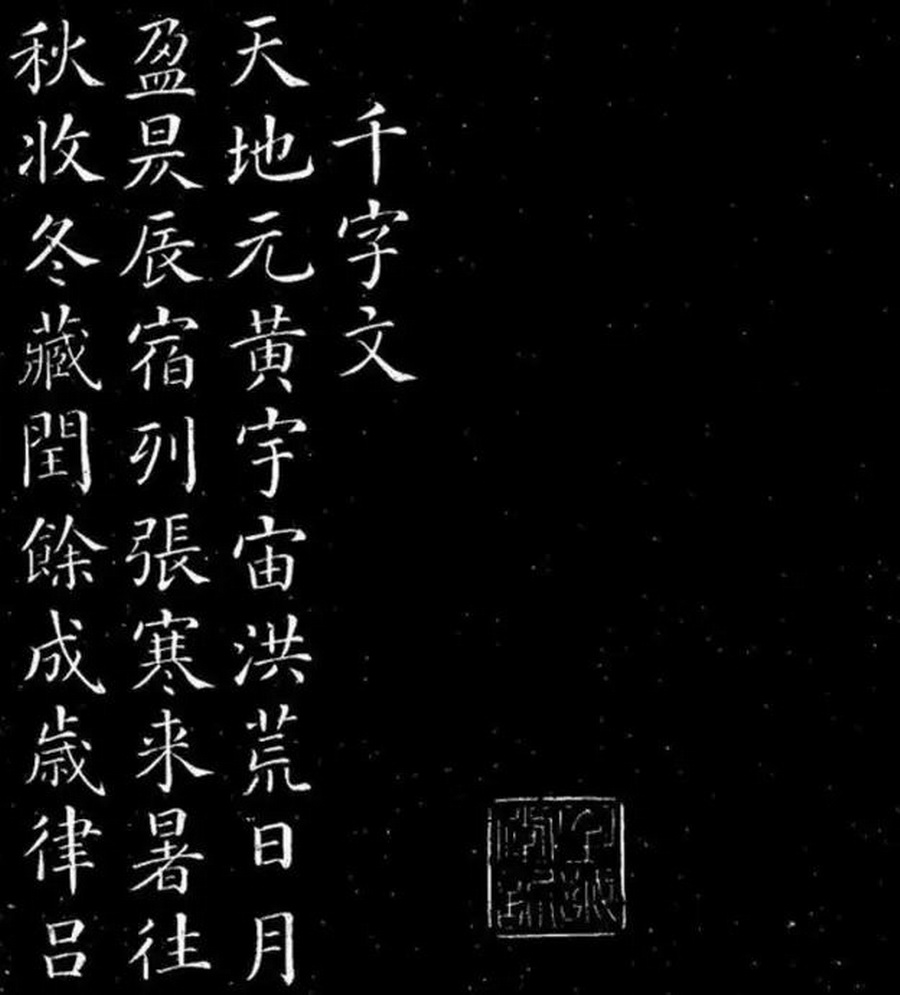 千字文
天地元黄宇宙洪荒日月
盈昃辰宿列張寒来暑往
秋收冬藏閏餘成歲律吕